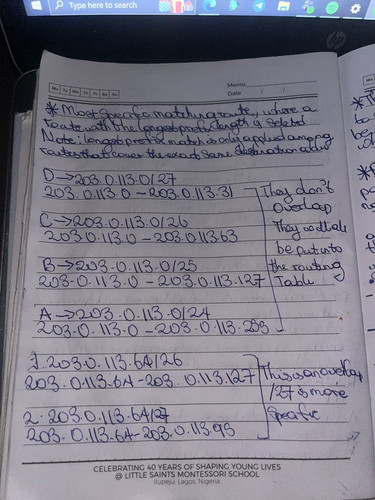 Type here to search
Mo Tu We Th Fr Sa Su
Memo
Date / /
* Most Specific matching route, where a
route with the longest prefix length is selected
Note: longest prefix match is only applied among
routes that cover the exact same destination
D → 203.0.113.0/27
203.0.113.0 – 203.0.113.31
C → 203.0.113.0/26
203.0.113.0 – 203.0.113.63
B → 203.0.113.0/25
203.0.113.0 – 203.0.113.127
A → 203.0.113.0/24
203.0.113.0 – 203.0.113.255
They don't
overlap
They will all
be put into
the routing
Table
1. 203.0.113.64/26
203.0.113.64 – 203.0.113.127
2. 203.0.113.64/27
203.0.113.64 – 203.0.113.95
This is an overlap
/27 is more
Specific
CELEBRATING 40 YEARS OF SHAPING YOUNG LIVES
@ LITTLE SAINTS MONTESSORI SCHOOL
Ilupeju, Lagos, Nigeria